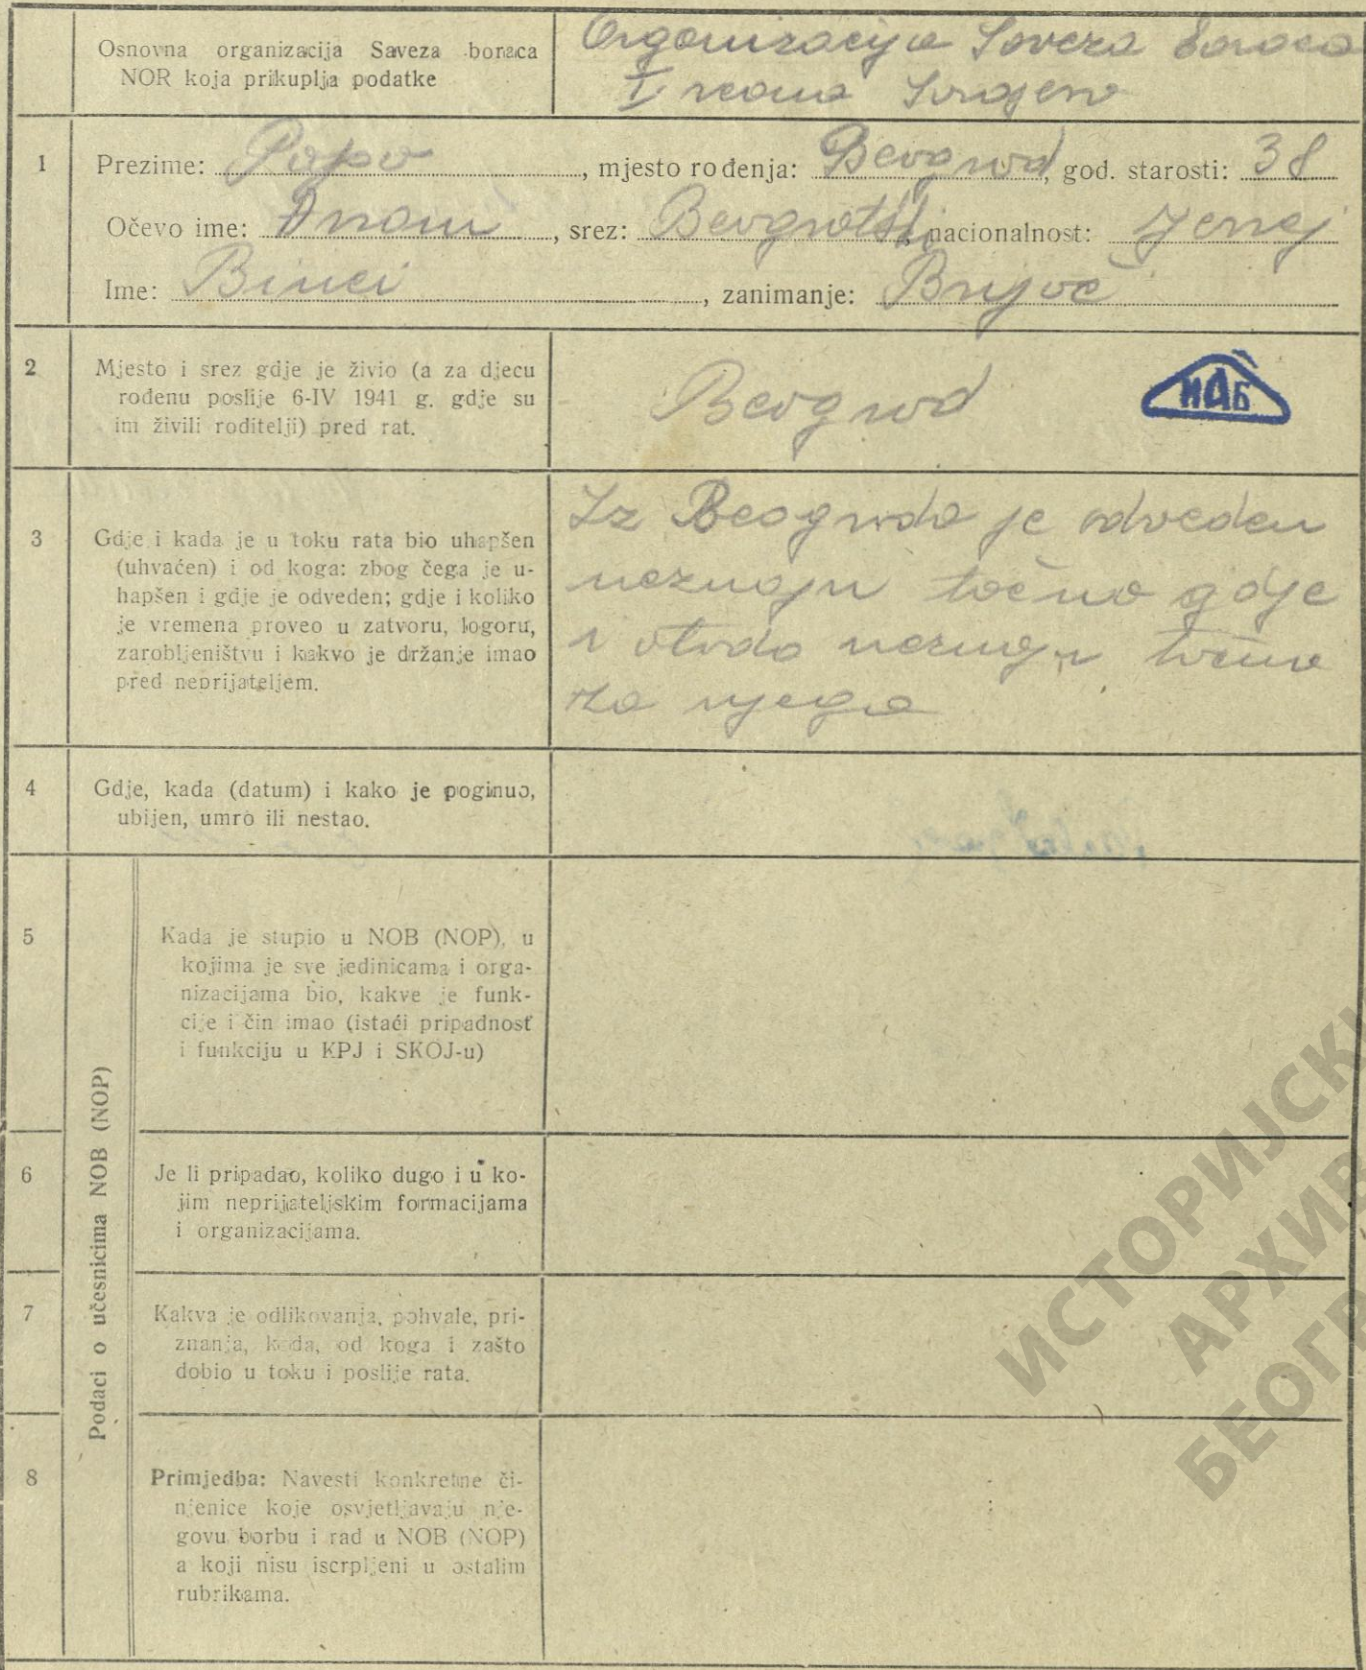 Osnovna organizacija Saveza boraca
NOR koja prikuplja podatke
Organizacija Saveza boraca
I reona Sarajevo
1 Prezime: Papo, mjesto rođenja: Beograd, god. starosti: 38
Očevo ime: Avram, srez: Beogratski nacionalnost: Jevrej
Ime: Binci, zanimanje: Brijač
2 Mjesto i srez gdje je živio (a za djecu
rođenu poslije 6-IV 1941 g. gdje su
im živili roditelji) pred rat.
Beograd
ИАБ
3 Gdje i kada je u toku rata bio uhapšen
(uhvaćen) i od koga: zbog čega je u-
hapšen i gdje je odveden; gdje i koliko
je vremena proveo u zatvoru, logoru,
zarobljeništvu i kakvo je držanje imao
pred neprijateljem.
Iz Beograda je odveden
neznaju točno gdje
i otada neznaju točno
za njega
4 Gdje, kada (datum) i kako je poginuo,
ubijen, umro ili nestao.
Podaci o učesnicima NOB (NOP)
5 Kada je stupio u NOB (NOP), u
kojima je sve jedinicama i orga-
nizacijama bio, kakve je funk-
cije i čin imao (istaći pripadnost
i funkciju u KPJ i SKOJ-u)
6 Je li pripadao, koliko dugo i u ko-
jim neprijateljskim formacijama
i organizacijama.
7 Kakva je odlikovanja, pohvale, pri-
znanja, kada, od koga i zašto
dobio u toku i poslije rata.
8 Primjedba: Navesti konkretne či-
njenice koje osvjetljavaju nje-
govu borbu i rad u NOB (NOP)
a koji nisu iscrpljeni u ostalim
rubrikama.
ИСТОРИЈСКИ
АРХИВ
БЕОГР